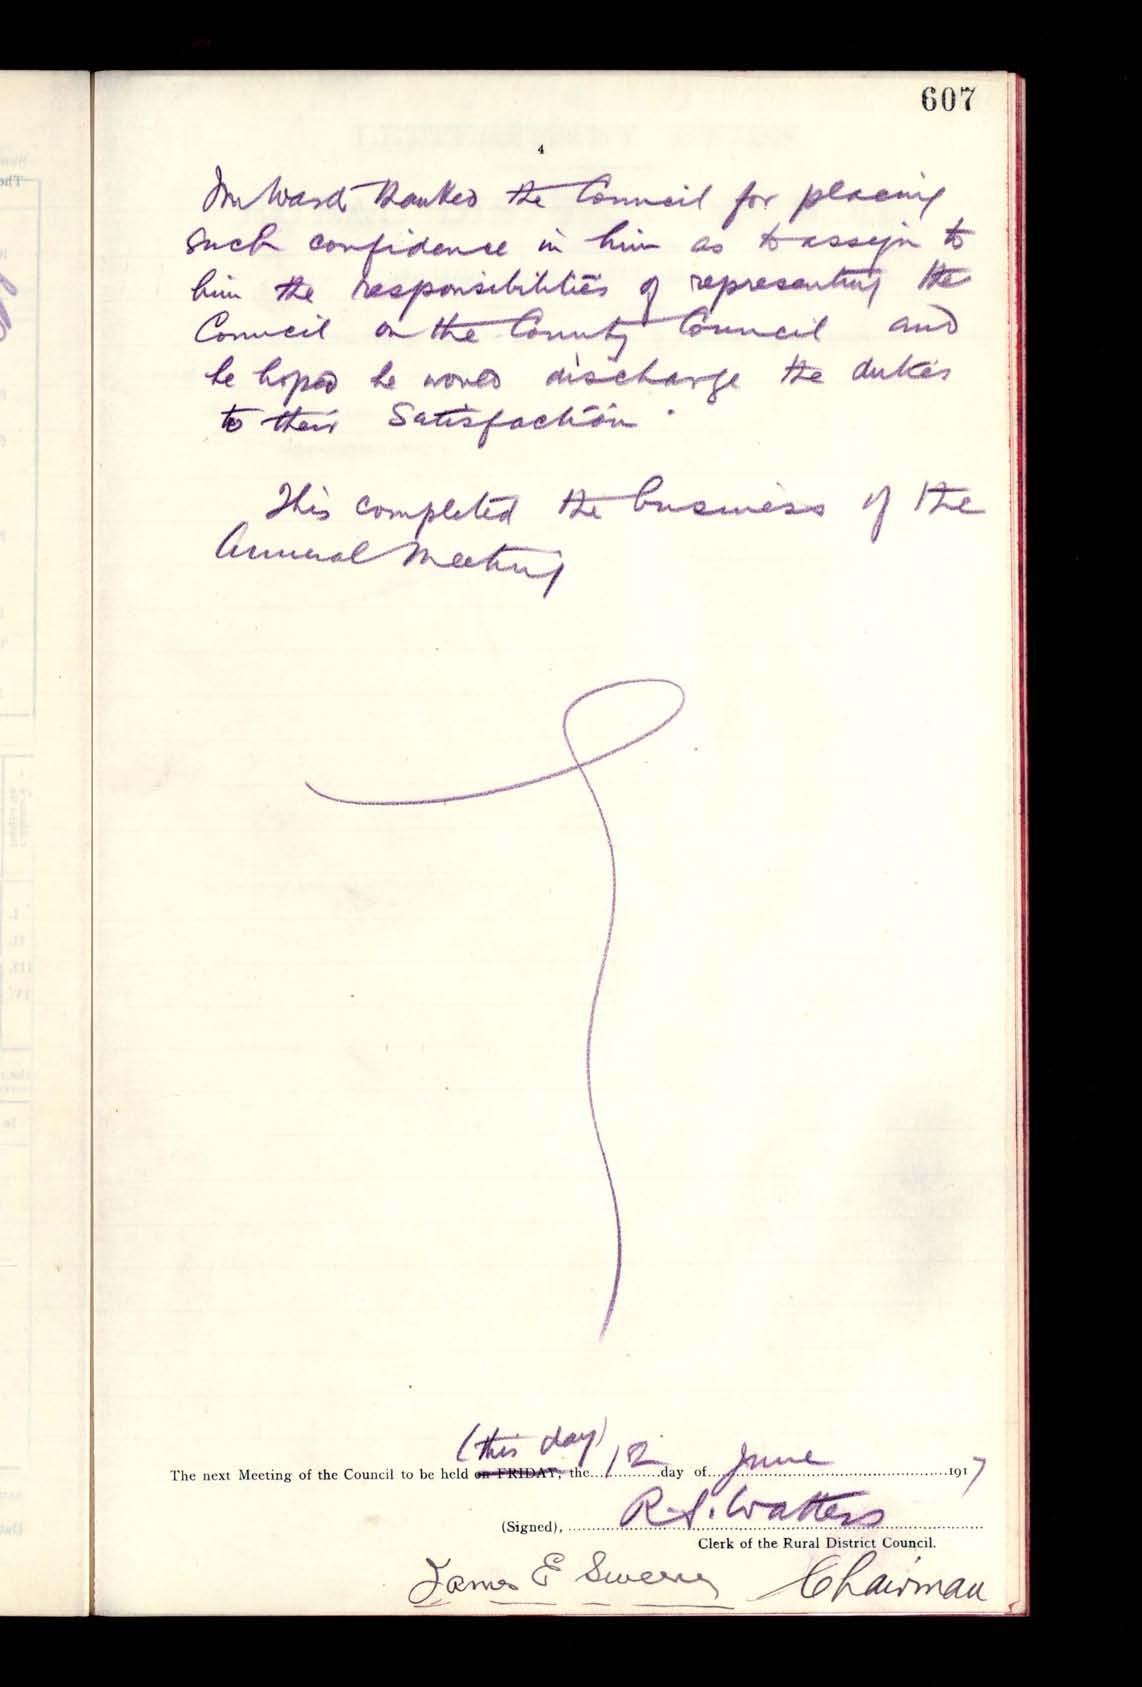 607
4
Mr Ward thanked the Council for placing
such confidence in him as to assign to
him the responsibilities of representing the
Council on the County Council and
he hoped he would discharge the duties
to their Satisfaction.
This completed the business of the
Annual Meeting
(this day)
The next Meeting of the Council to be held on FRIDAY, the 12 day of June 1917
R. S. Watters
(Signed),
Clerk of the Rural District Council.
James E Sweeny Chairman